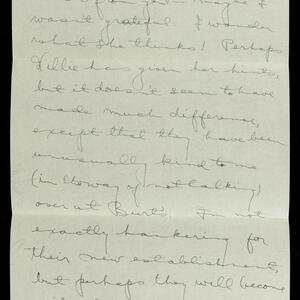 maybe I
wasn't grateful. I wonder
what she thinks! Perhaps
Lillie has given her hints,
but it doesn't seem to have
made much difference,
except that they have been
unusually kind to me
(in the way of not talking)
over at Burt's. I'm not
exactly hankering for
their new establishment,
but perhaps they will become